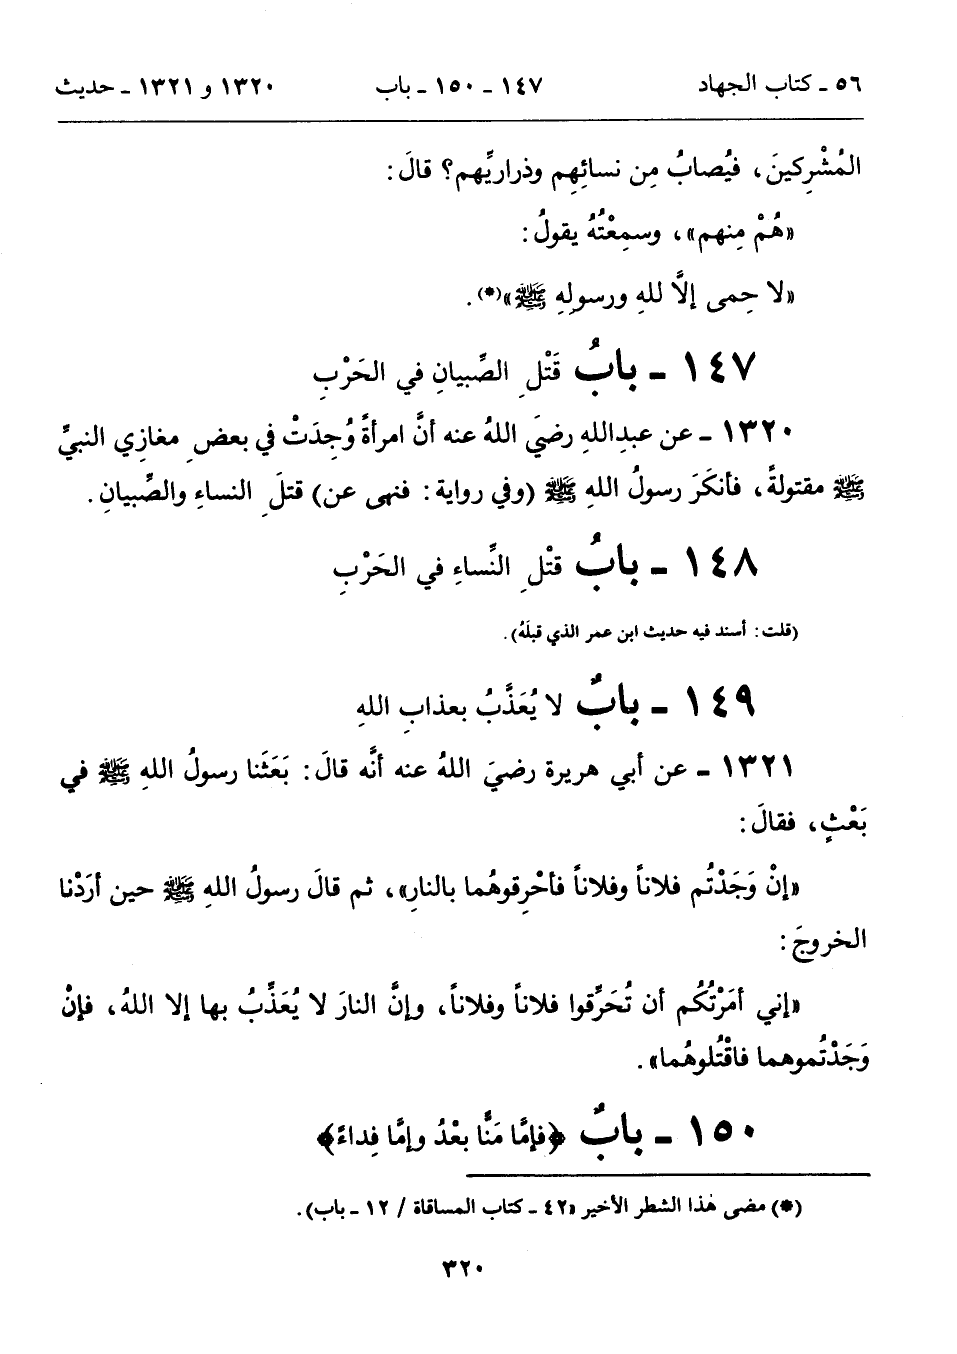 ٥٦ ـ كتاب الجهاد ١٤٧ ـ ١٥٠ ـ باب ١٣٢٠ و ١٣٢١ ـ حديث
المُشْرِكينَ، فيُصابُ مِن نسائِهِم وذراريِّهم؟ قالَ:
«هُمْ مِنهم»، وسمِعْتُهُ يقولُ:
«لا حِمى إلاَّ للهِ ورسولِهِ ﷺ»(*).
١٤٧ ـ بابُ قَتْلِ الصِّبيانِ في الحَرْبِ
١٣٢٠ ـ عن عبدِاللهِ رضيَ اللهُ عنه أنَّ امرأةً وُجِدَتْ في بعضِ مغازي النبيِّ
ﷺ مقتولةً، فأنكَرَ رسولُ اللهِ ﷺ (وفي رواية: فنهى عن) قتلَِ النساءِ والصِّبيانِ.
١٤٨ ـ بابُ قتْلِ النِّساءِ في الحَرْبِ
(قلت: أسند فيه حديث ابن عمر الذي قبلَهُ).
١٤٩ ـ بابٌ لا يُعَذَّبُ بعذابِ اللهِ
١٣٢١ ـ عن أبي هريرة رضيَ اللهُ عنه أنَّه قالَ: بَعَثَنا رسولُ اللهِ ﷺ في
بَعْثٍ، فقالَ:
«إنْ وَجَدْتُم فلاناً وفلاناً فأحْرِقوهُما بالنارِ»، ثم قالَ رسولُ اللهِ ﷺ حين أرَدْنا
الخروجَ:
«إني أمَرْتُكُم أن تُحَرِّقوا فلاناً وفلاناً، وإنَّ النارَ لا يُعَذِّبُ بها إلا اللهُ، فإنْ
وَجَدْتُموهما فاقْتُلوهُما».
١٥٠ ـ بابُ ﴿فإمَّا مَنًّا بعْدُ وإمَّا فِداءً﴾
(*) مضى هٰذا الشطر الأخير «٤٢ ـ كتاب المساقاة / ١٢ ـ باب).
٣٢٠